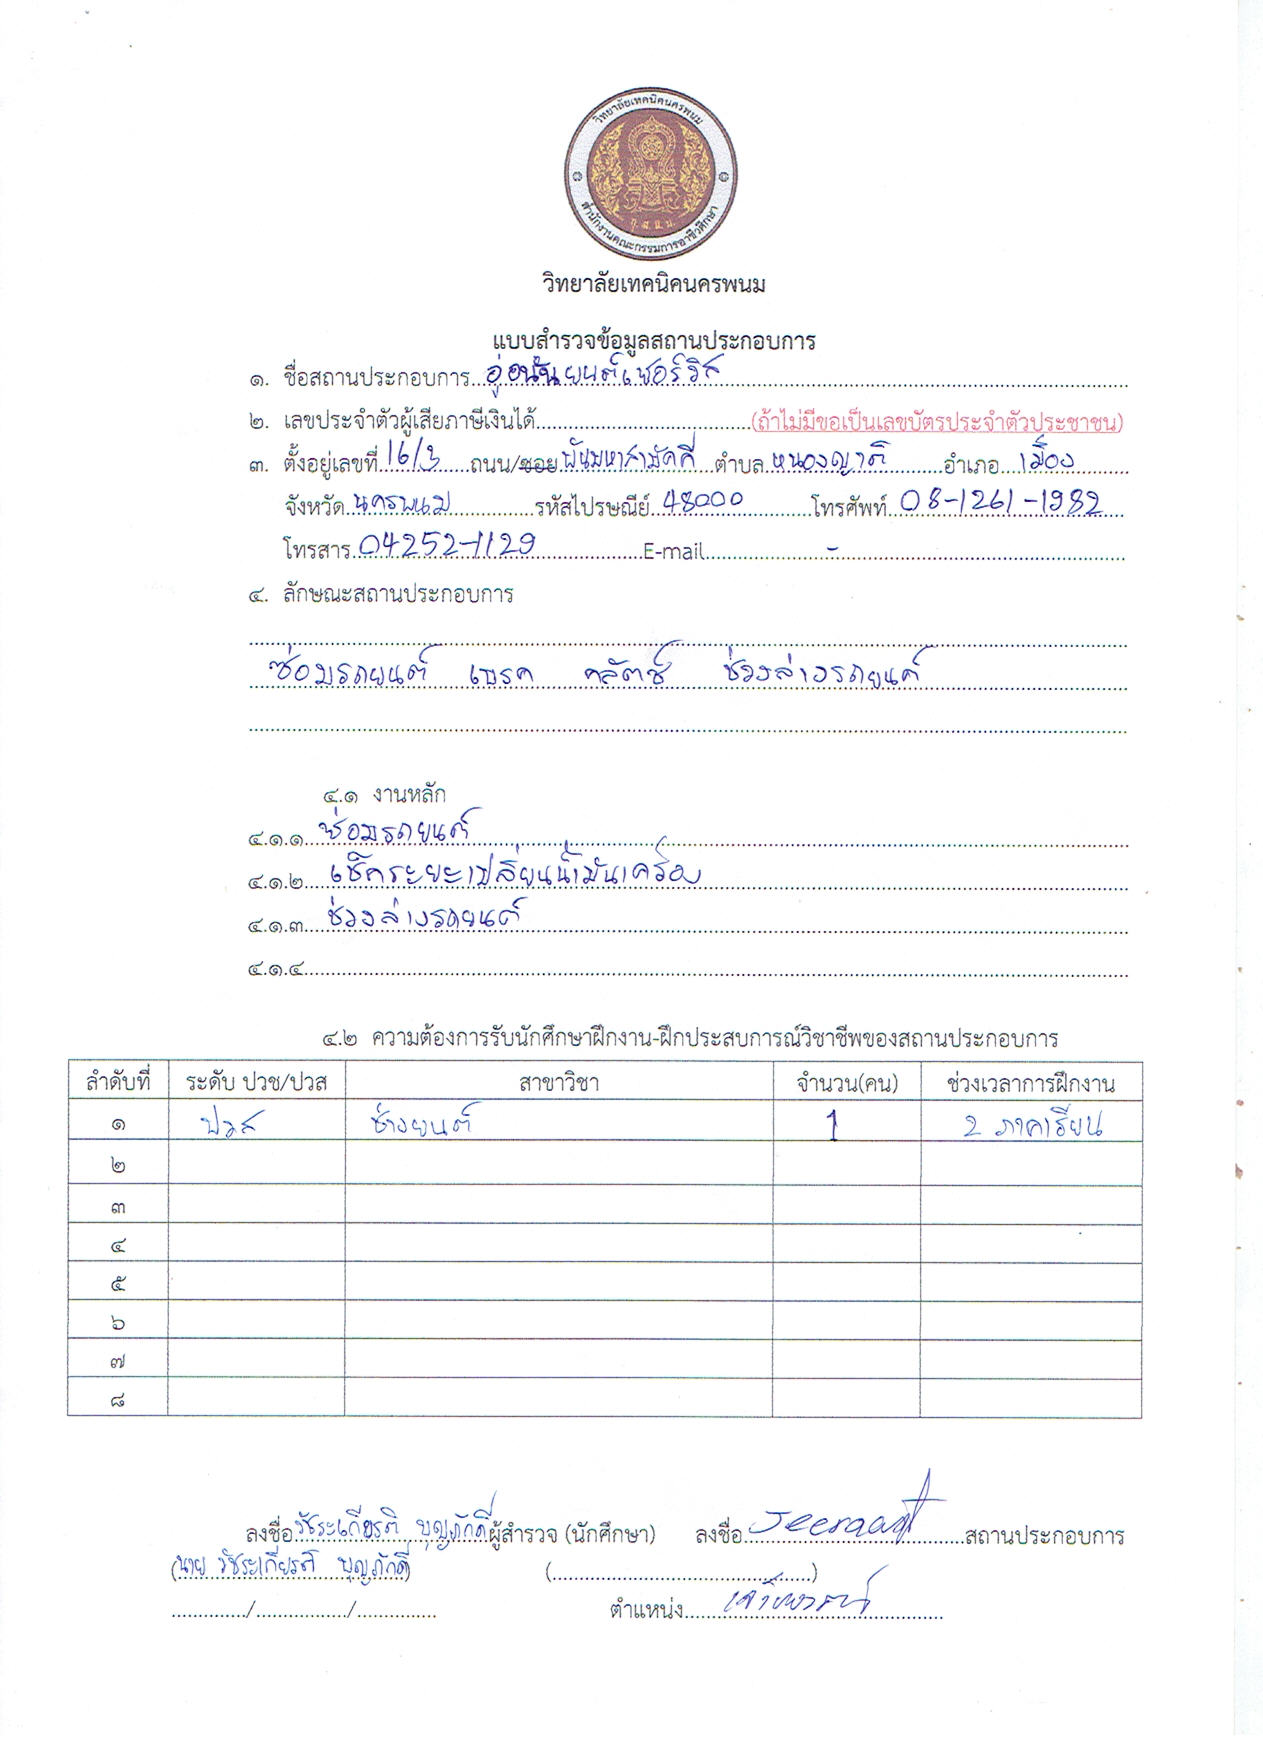 วิทยาลัยเทคนิคนครพนม
สำนักงานคณะกรรมการอาชีวศึกษา
วิทยาลัยเทคนิคนครพนม
แบบสำรวจข้อมูลสถานประกอบการ
๑. ชื่อสถานประกอบการ อู่อนันยนต์เซอร์วิส
๒. เลขประจำตัวผู้เสียภาษีเงินได้ (ถ้าไม่มีขอเป็นเลขบัตรประจำตัวประชาชน)
๓. ตั้งอยู่เลขที่ 16/3 ถนน/ซอย ตำบล หนองญาติ อำเภอ เมือง
จังหวัด นครพนม รหัสไปรษณีย์ 48000 โทรศัพท์ 08-1261-1982
โทรสาร 04252-1129 E-mail -
๔. ลักษณะสถานประกอบการ
ซ่อมรถยนต์ เบรค คลัตช์ ช่วงล่างรถยนต์
๔.๑ งานหลัก
๔.๑.๑ ซ่อมรถยนต์
๔.๑.๒ เช็คระยะเปลี่ยนน้ำมันเครื่อง
๔.๑.๓ ช่วงล่างรถยนต์
๔.๑.๔
๔.๒ ความต้องการรับนักศึกษาฝึกงาน-ฝึกประสบการณ์วิชาชีพของสถานประกอบการ
ลำดับที่ ระดับ ปวช/ปวส สาขาวิชา จำนวน(คน) ช่วงเวลาการฝึกงาน
๑ ปวส ช่างยนต์ 1 2 ภาคเรียน
๒
๓
๔
๕
๖
๗
๘
ลงชื่อ วัชระเกียรติ บุญภักดี ผู้สำรวจ (นักศึกษา) ลงชื่อ สถานประกอบการ
(นาย วัชระเกียรติ บุญภักดี) ( )
/ / ตำแหน่ง